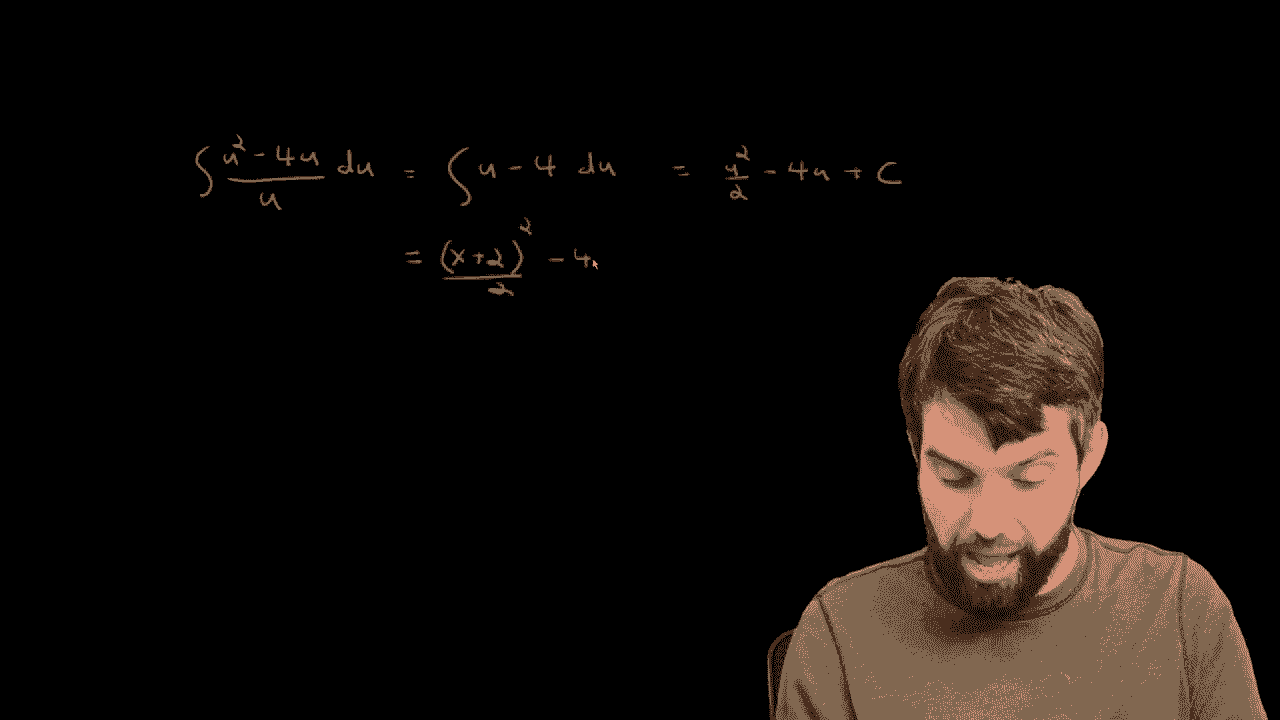 ∫ u² - 4u / u du = ∫ u - 4 du = u²/2 - 4u + C
= (x+2)²/2 - 4